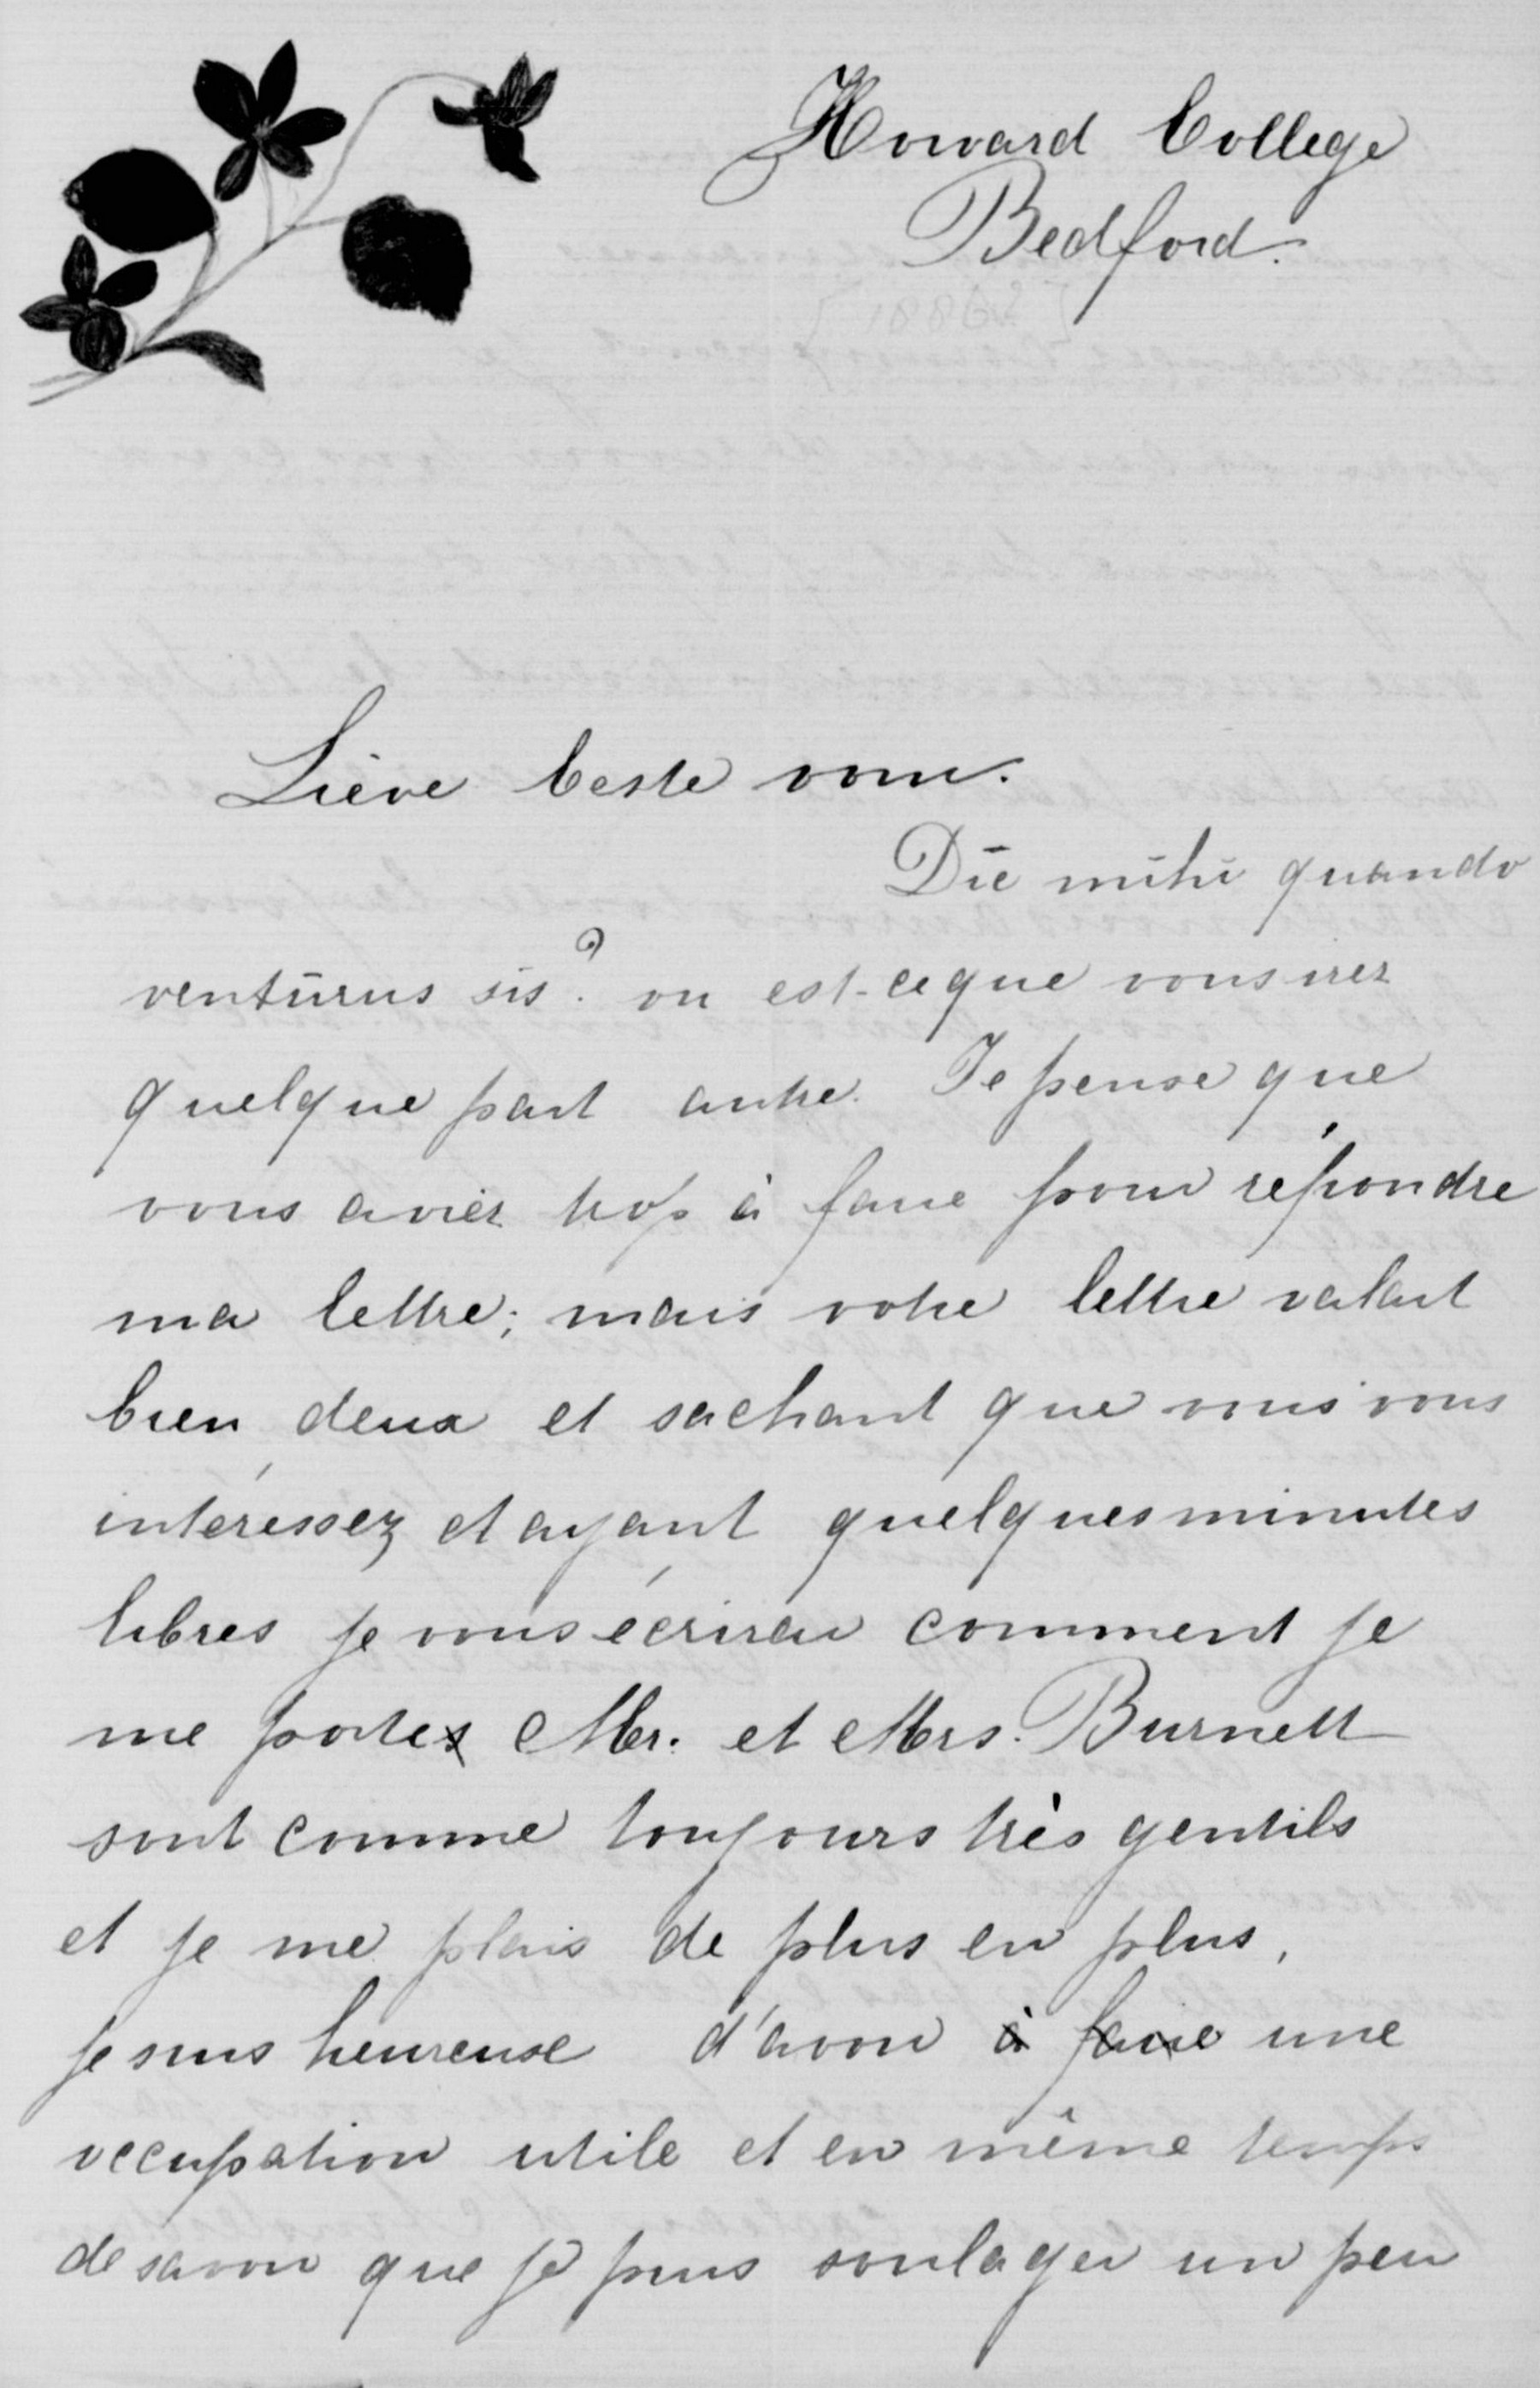 Howard College
Bedford.
Lieve beste oom.
Dic mihi quando
ventūrus sīs? ou est-ce que vous irez
quelque part autre. Je pense que
vous aviez trop à faire pour répondre
ma lettre; mais votre lettre valait
bien deux et sachant que vous vous
intéressez et ayant quelques minutes
libres je vous écrirai comment je
me porte Mr. et Mrs. Burnett
sont comme toujours très gentils
et je me plais de plus en plus,
je suis heureuse d'avoir à faire une
occupation utile et en même temps
de savoir que je puis soulager un peu